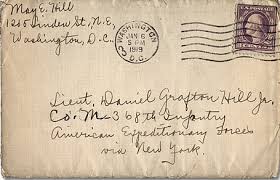 May E. Hill
1205 Linden St., N.E.
Washington, D.C.
WASHINGTON
JAN 6
5 PM
1919
D.C.
Lieut. Daniel Grafton Hill Jr.
Co. M - 368th Infantry
American Expeditionary Forces
via New York.